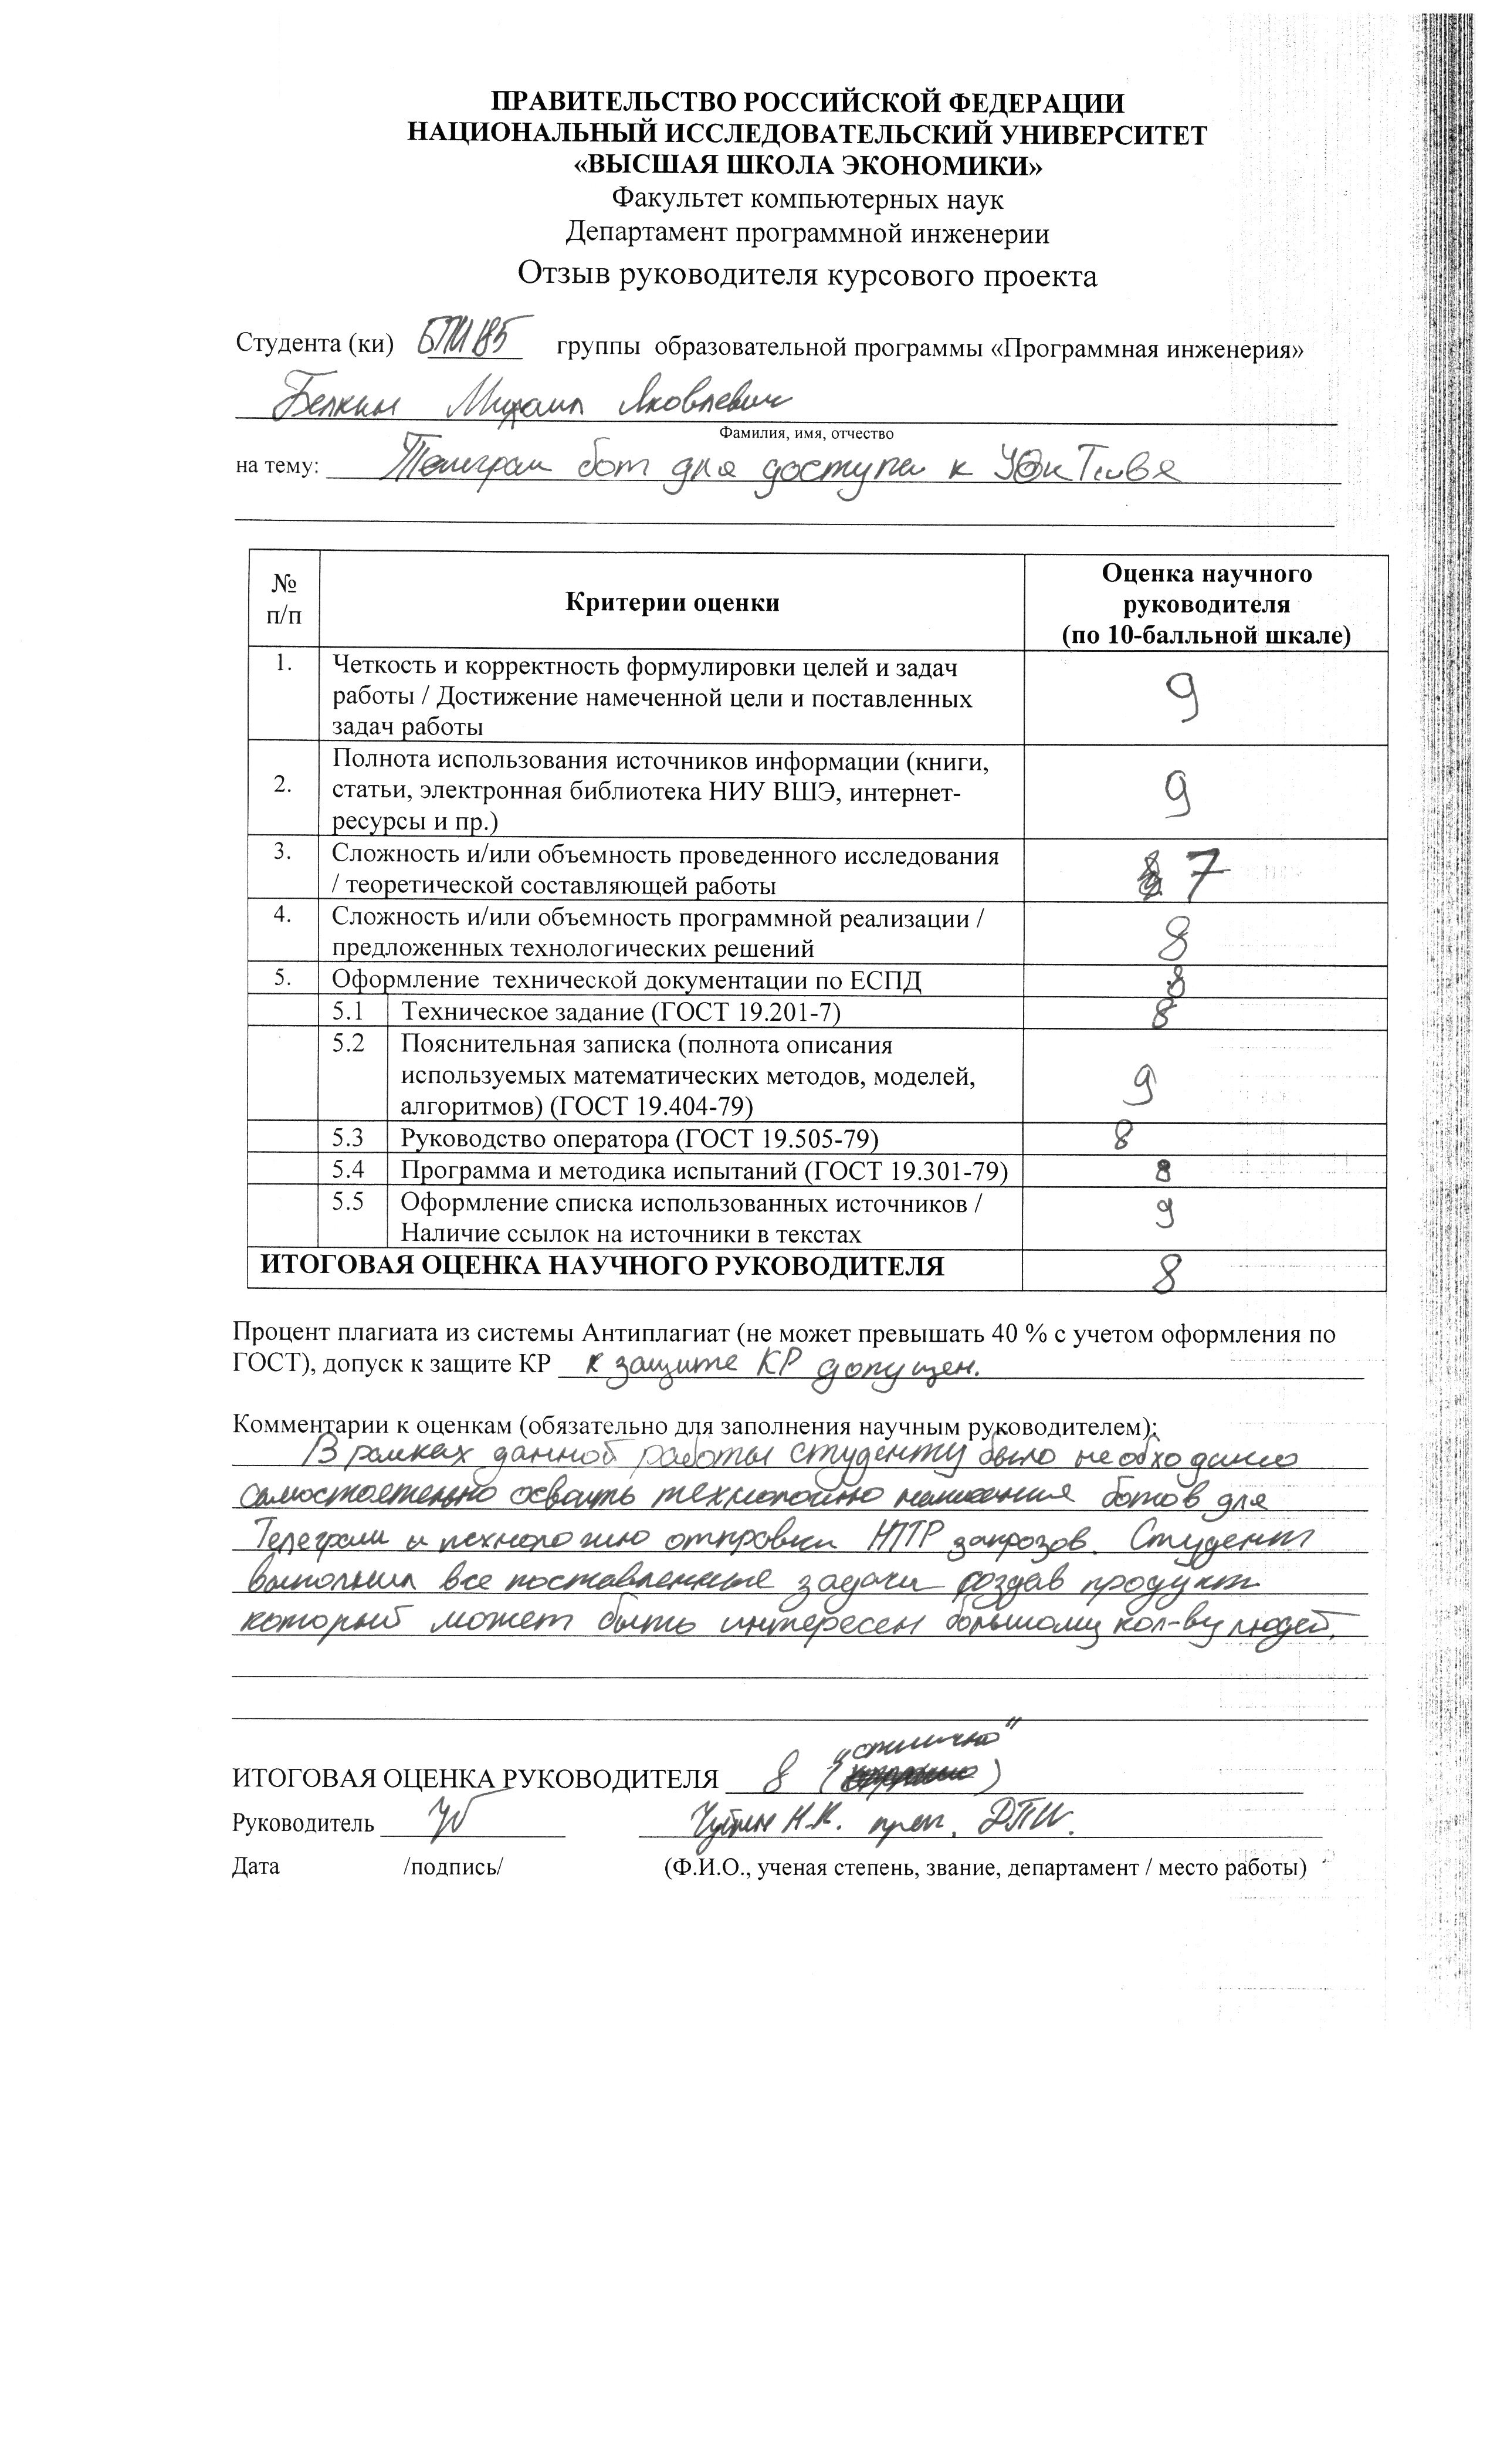 ПРАВИТЕЛЬСТВО РОССИЙСКОЙ ФЕДЕРАЦИИ
НАЦИОНАЛЬНЫЙ ИССЛЕДОВАТЕЛЬСКИЙ УНИВЕРСИТЕТ
«ВЫСШАЯ ШКОЛА ЭКОНОМИКИ»
Факультет компьютерных наук
Департамент программной инженерии
Отзыв руководителя курсового проекта
Студента (ки) БПИ185 группы образовательной программы «Программная инженерия»
Белкин Михаил Яковлевич
Фамилия, имя, отчество
на тему: Телеграм бот для доступа к
№ п/п Критерии оценки Оценка научного руководителя (по 10-балльной шкале)
1. Четкость и корректность формулировки целей и задач
работы / Достижение намеченной цели и поставленных 9
задач работы
Полнота использования источников информации (книги,
2. статьи, электронная библиотека НИУ ВШЭ, интернет- 9
ресурсы и пр.)
3. Сложность и/или объемность проведенного исследования 7
/ теоретической составляющей работы
4. Сложность и/или объемность программной реализации / 8
предложенных технологических решений
5. Оформление технической документации по ЕСПД 8
5.1 Техническое задание (ГОСТ 19.201-7) 8
5.2 Пояснительная записка (полнота описания
используемых математических методов, моделей, 9
алгоритмов) (ГОСТ 19.404-79)
5.3 Руководство оператора (ГОСТ 19.505-79) 8
5.4 Программа и методика испытаний (ГОСТ 19.301-79) 8
5.5 Оформление списка использованных источников / 9
Наличие ссылок на источники в текстах
ИТОГОВАЯ ОЦЕНКА НАУЧНОГО РУКОВОДИТЕЛЯ 8
Процент плагиата из системы Антиплагиат (не может превышать 40 % с учетом оформления по
ГОСТ), допуск к защите КР к защите КР допущен.
Комментарии к оценкам (обязательно для заполнения научным руководителем):
В рамках данной работы студенту было необходимо
самостоятельно освоить технологию написания ботов для
Телеграм и технологию отправки HTTP запрозов. Студент
выполнил все поставленные задачи создав продукт
который может быть интересен большому кол-ву людей.
"отлично"
ИТОГОВАЯ ОЦЕНКА РУКОВОДИТЕЛЯ 8 ( )
Руководитель Н.К. преп. ДПИ.
Дата /подпись/ (Ф.И.О., ученая степень, звание, департамент / место работы)